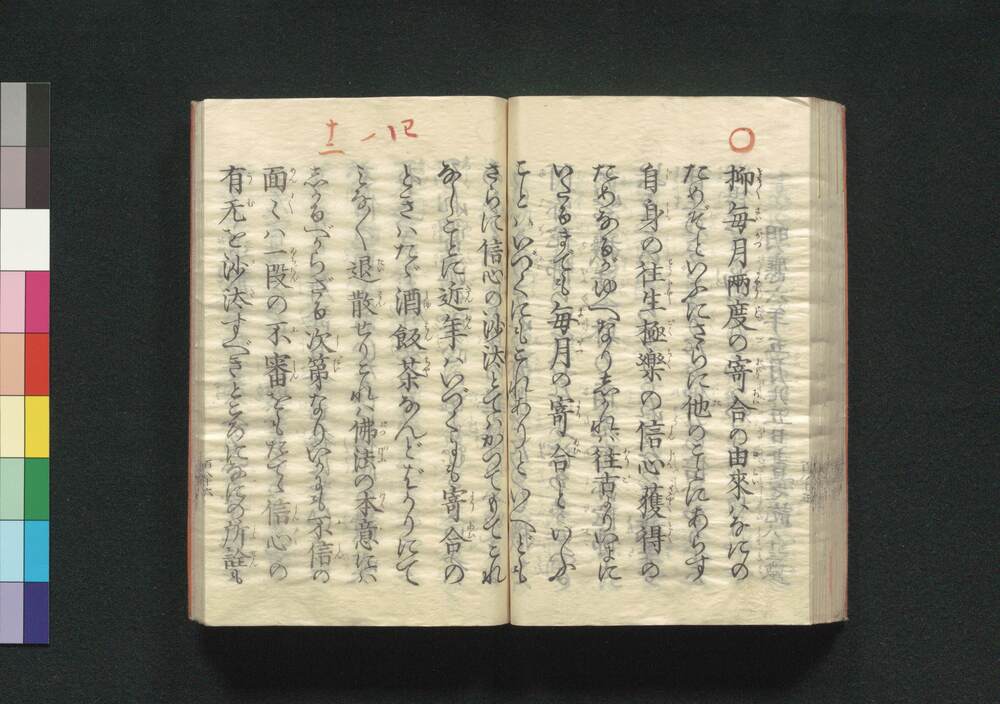 抑毎月兩度の寄合の由來はなにの
ためそといふにさらに他のことにあらす
自身の往生極樂の信心獲得の
ためなるがゆへなりしかれは往古よりいまに
いたるまても毎月の寄合といふ
ことはいづくにもこれありといへども
さらに信心の沙汰とてはかつてもてこれ
なしことに近年はいづくにも寄合の
ときはたゞ酒飯茶なんどばかりにて
みなみな退散せりこれは佛法の本意には
しかるべからざる次第なりいかにも不信の
面〻は一段の不審をもたてゝ信心の
有无を沙汰すべきところになにの所詮も
十二